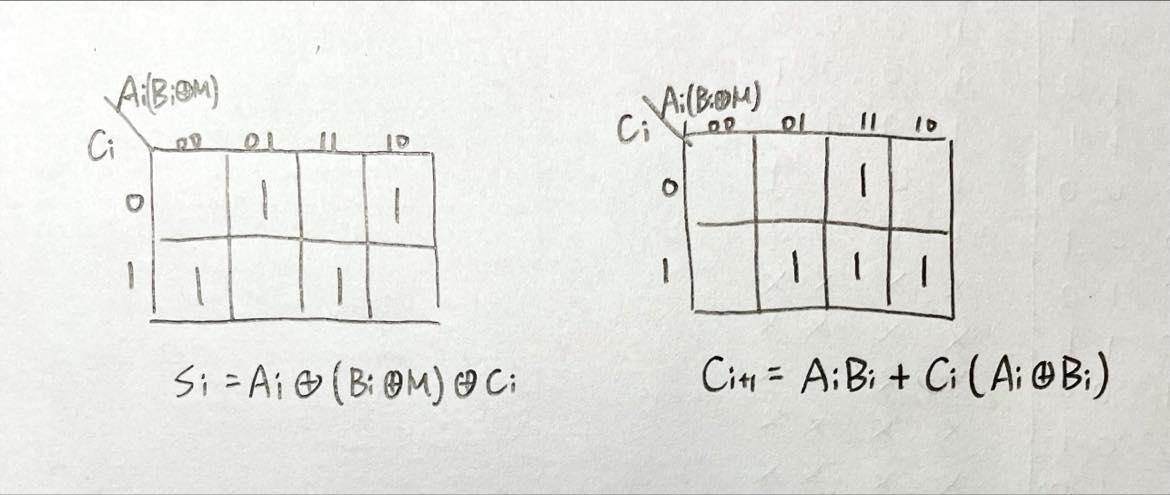 Ai(Bi⊕M)
Ci 00 01 11 10
0 1 1
1 1 1
Si = Ai ⊕ (Bi ⊕ M) ⊕ Ci
Ai(Bi⊕M)
Ci 00 01 11 10
0 1
1 1 1 1
Ci+1 = AiBi + Ci (Ai ⊕ Bi)